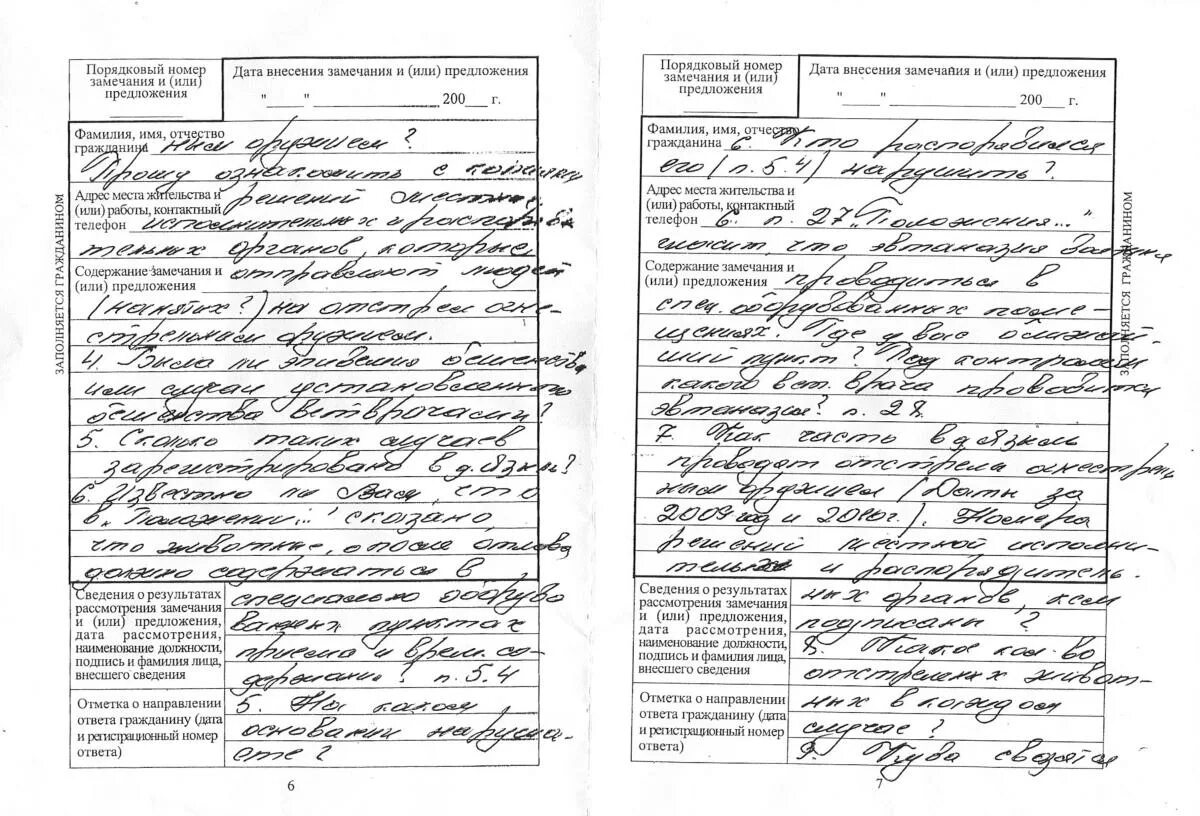 Порядковый номер
замечания и (или)
предложения
Дата внесения замечания и (или) предложения
"____" ____________ 200___ г.
Фамилия, имя, отчество
гражданина ным оружием?
Прошу ознакомить с копиями
Адрес места жительства и
(или) работы, контактный
телефон
решений местных
исполнительных и распоряди
тельных органов, которые
Содержание замечания и
(или) предложения
отправляют людей
(нанятых?) на отстрел огне-
стрельным оружием.
4. Была ли эпидемия бешенства
или случаи установленного
бешенства ветврачами?
5. Сколько таких случаев
зарегистрировано в д. Язвы?
6. Известно ли Вам, что
в „Положении..." сказано,
что животные, после отлова
должно содержаться в
Сведения о результатах
рассмотрения замечания
и (или) предложения,
дата рассмотрения,
наименование должности,
подпись и фамилия лица,
внесшего сведения
специально оборудо
ванных пунктах
приема и врем. со-
держания? п. 5.4
Отметка о направлении
ответа гражданину (дата
и регистрационный номер
ответа)
5. На каком
основании наруша-
ете?
6
ЗАПОЛНЯЕТСЯ ГРАЖДАНИНОМ
Порядковый номер
замечания и (или)
предложения
Дата внесения замечания и (или) предложения
"____" ____________ 200___ г.
Фамилия, имя, отчество
гражданина 6. Кто распорядился
его (п. 5.4) нарушить?
Адрес места жительства и
(или) работы, контактный
телефон 6. п. 27 „Положения..."
гласит, что эвтаназия должна
Содержание замечания и
(или) предложения
проводиться в
спец. оборудованных поме-
щениях. Где у вас ближай-
ший пункт? Под контролем
какого вет. врача проводится
эвтаназия? п. 28.
7. Как часто в д. Язвы
проводят отстрелы огнестрель
ным оружием (Даты за
2009 год и 2010г.). Номера
решений местной исполни-
тельных и распорядитель.
Сведения о результатах
рассмотрения замечания
и (или) предложения,
дата рассмотрения,
наименование должности,
подпись и фамилия лица,
внесшего сведения
ных органов, кем
подписаны?
8. Такое кол-во
отстреленных живот-
Отметка о направлении
ответа гражданину (дата
и регистрационный номер
ответа)
ных в каждом
случае?
9. Куда свозятся
7
ЗАПОЛНЯЕТСЯ ГРАЖДАНИНОМ